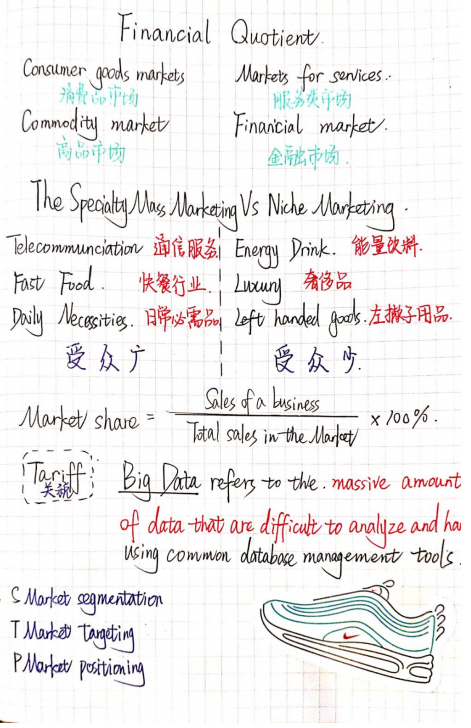 Financial Quotient.
Consumer goods markets Markets for services.
消费品市场 服务类市场
Commodity market Financial market.
商品市场 金融市场.
The Specialty Mass Marketing Vs Niche Marketing.
Telecommunciation 通信服务 Energy Drink. 能量饮料.
Fast Food. 快餐行业. Luxury 奢侈品
Daily Necessities. 日常必需品 Left handed goods. 左撇子用品.
受众广 受众少.
Sales of a business
Market share = × 100%.
Total sales in the Market
Tariff
关税
Big Data refers to the. massive amount
of data that are difficult to analyze and ha
using common database management tools.
S Market segmentation
T Market Targeting
P Market positioning